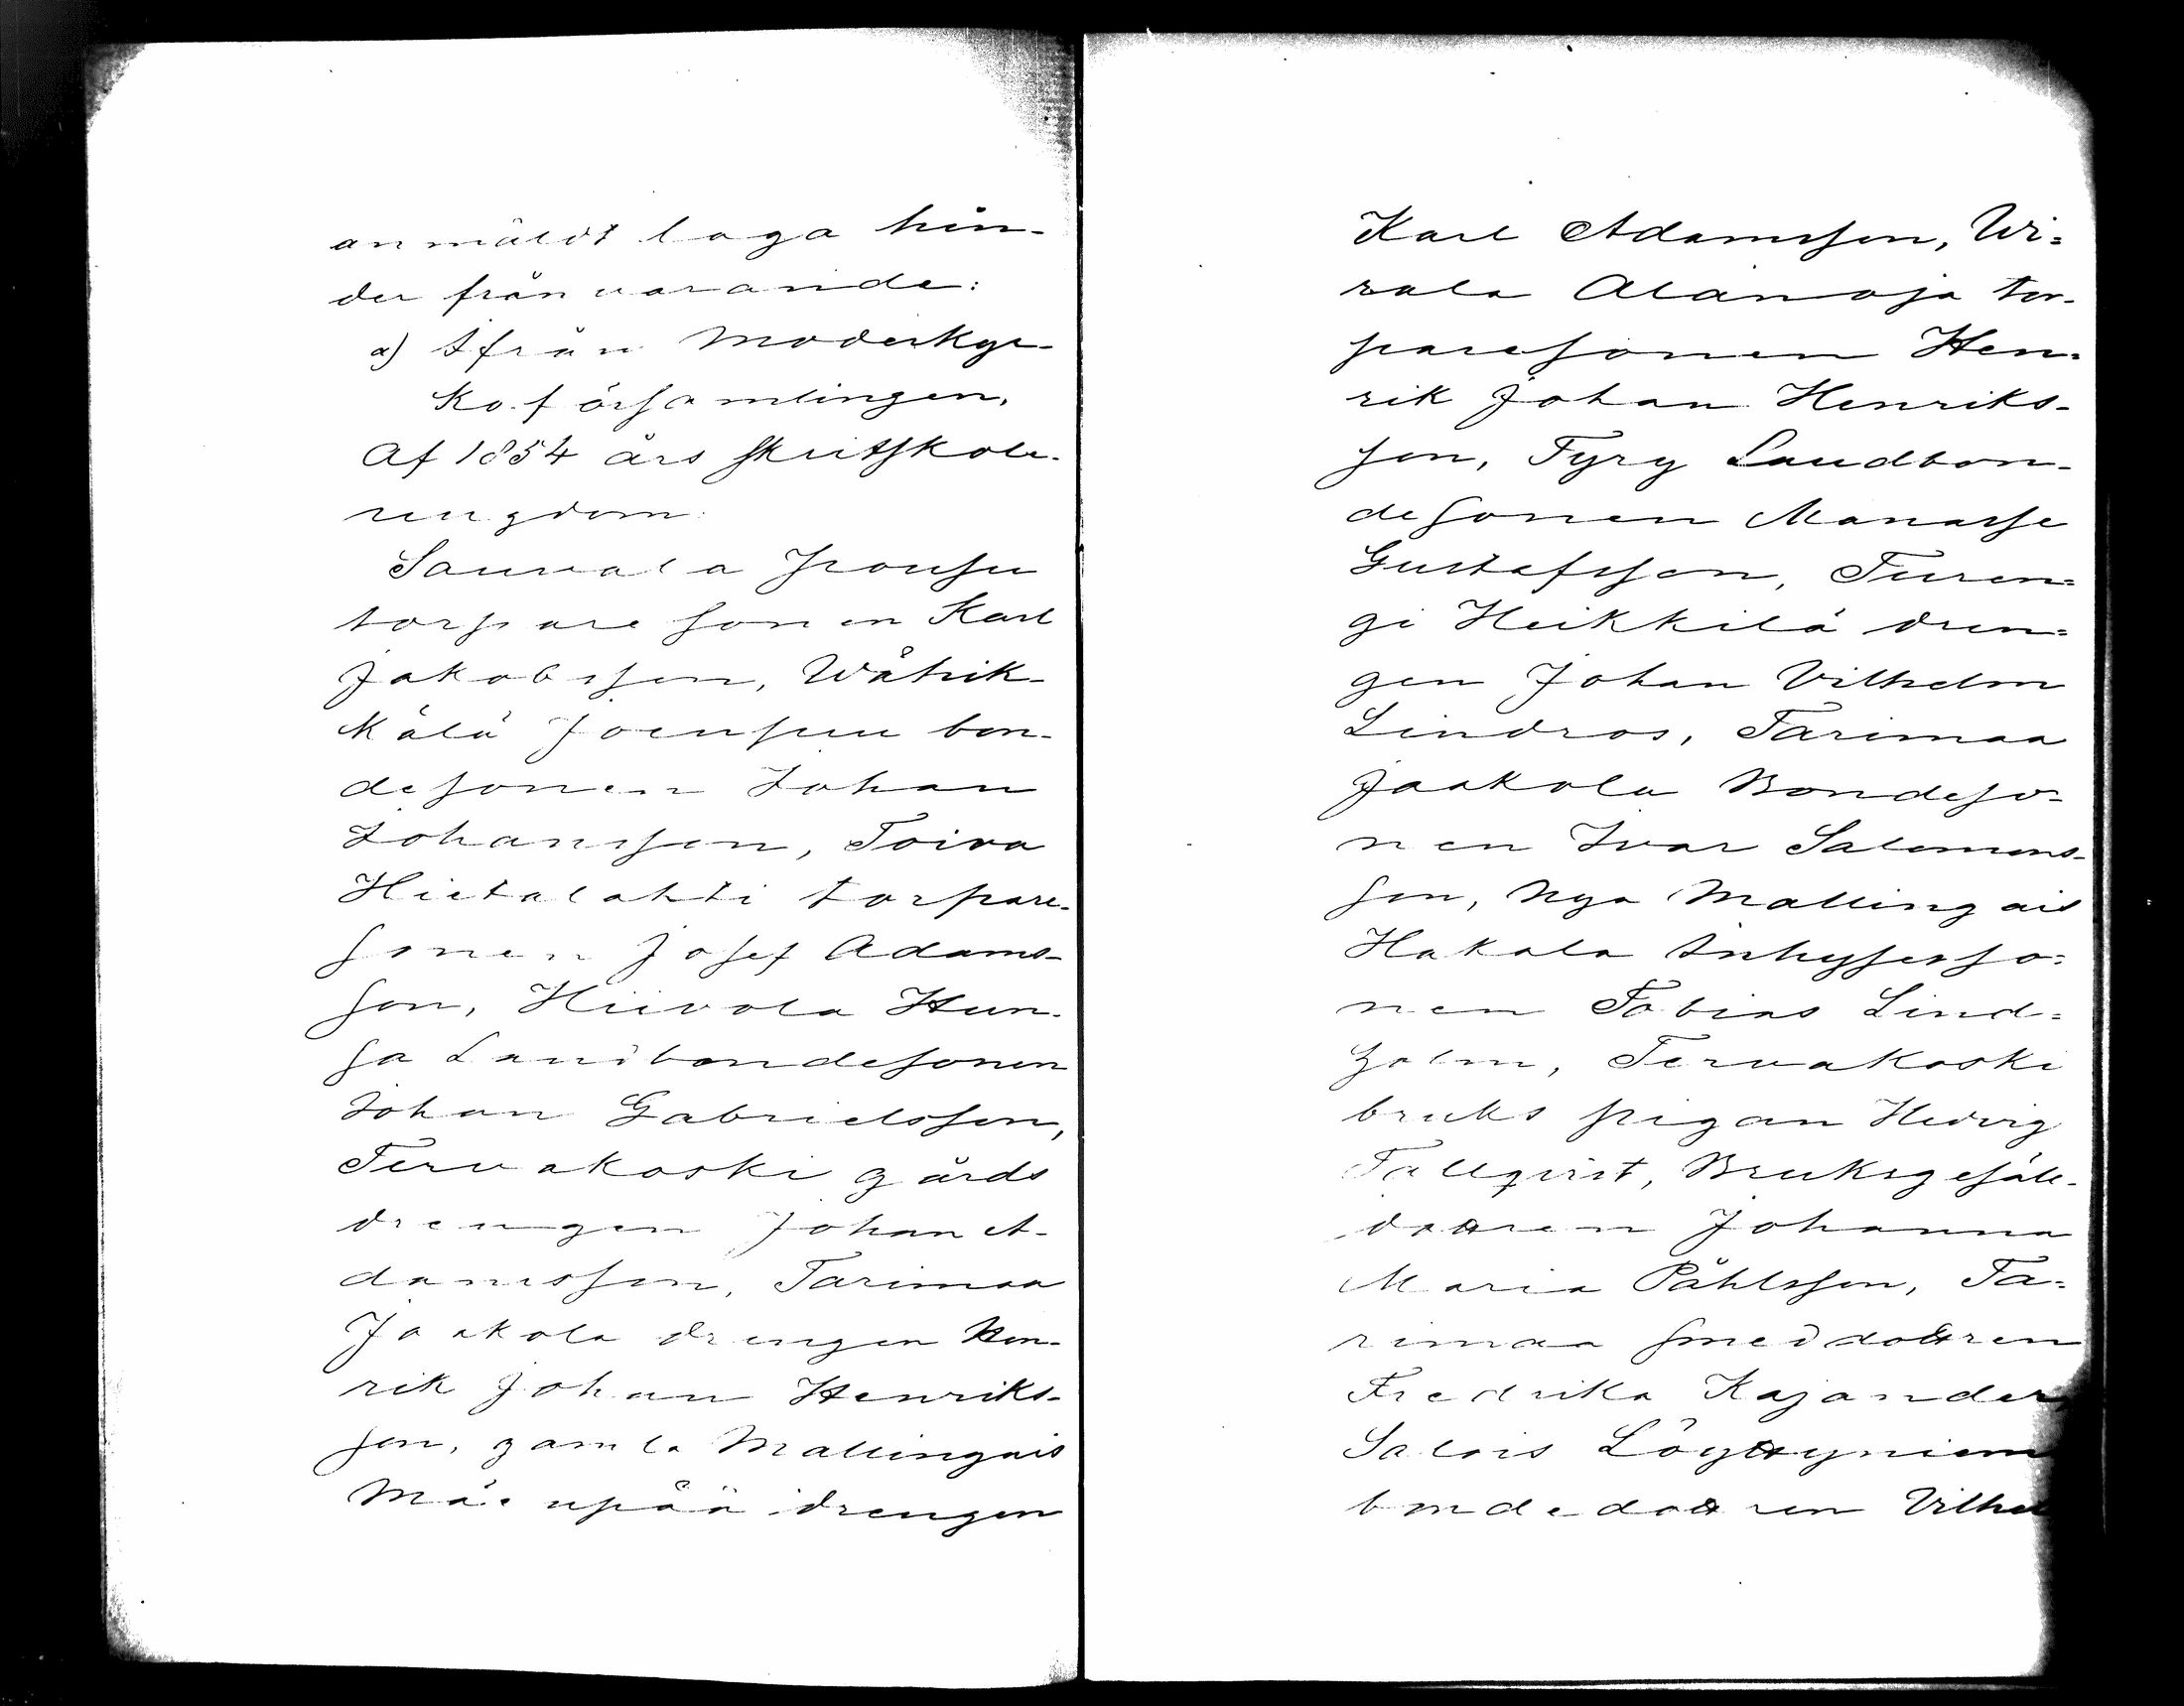 anmäldt laga hin-
der frånvarande:
a) Ifrån Moderkyr-
koförsamlingen.
Af 1854 års skriftskole-
ungdom:
Sauvala Prousu
torparesonen Karl
Jakobsson, Wähik-
kälä Joensuu bon-
desonen Johan
Johansson, Toiva
Hietalahti torpare-
sonen Josef Adams-
son, Hiivola Hun-
sa Landbondesonen
Johan Gabrielsson,
Tervakoski gårds
drengen Johan A-
damsson, Tarimaa
Jaakola drengen Hen-
rik Johan Henriks-
son, gamla Mallingais
Mäenpää drengen
Karl Adamsson, Wi=
rala Alanoja tor-
paresonen Hen=
rik Johan Henriks-
son, Tyry Landbon-
desonen Manasse
Gustafsson, Turen=
gi Heikkilä dren=
gen Johan Vilhelm
Lindros, Tarimaa
Jaakola Bondeso=
nen Ivar Salomons-
son, Nya Mallingais
Hakala Inhysesso=
nen Tobias Lind=
holm, Tervakoski
bruks pigan Hedvig
Tallqvist, Bruksgesäll-
dottren Johanna
Maria Påhlsson, Ta=
rimaa Smeddottren
Fredrika Kajander,
Salois Löyttyniem
bondedottren Vilhel